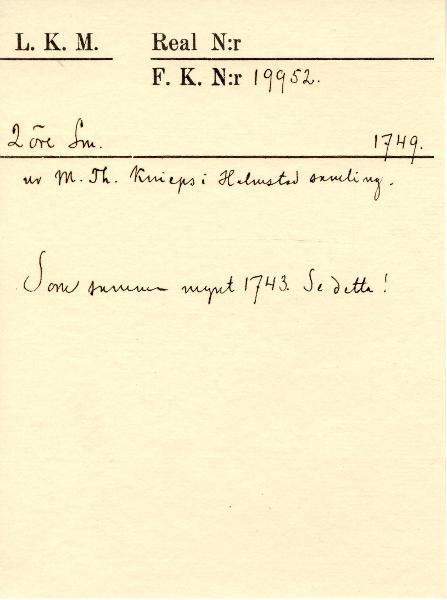 L. K. M. Real N:r
F. K. N:r 19952.
2 öre Sm. 1749.
ur M. Th. Knieps i Halmstad samling.
Som samma mynt 1743. Se detta!